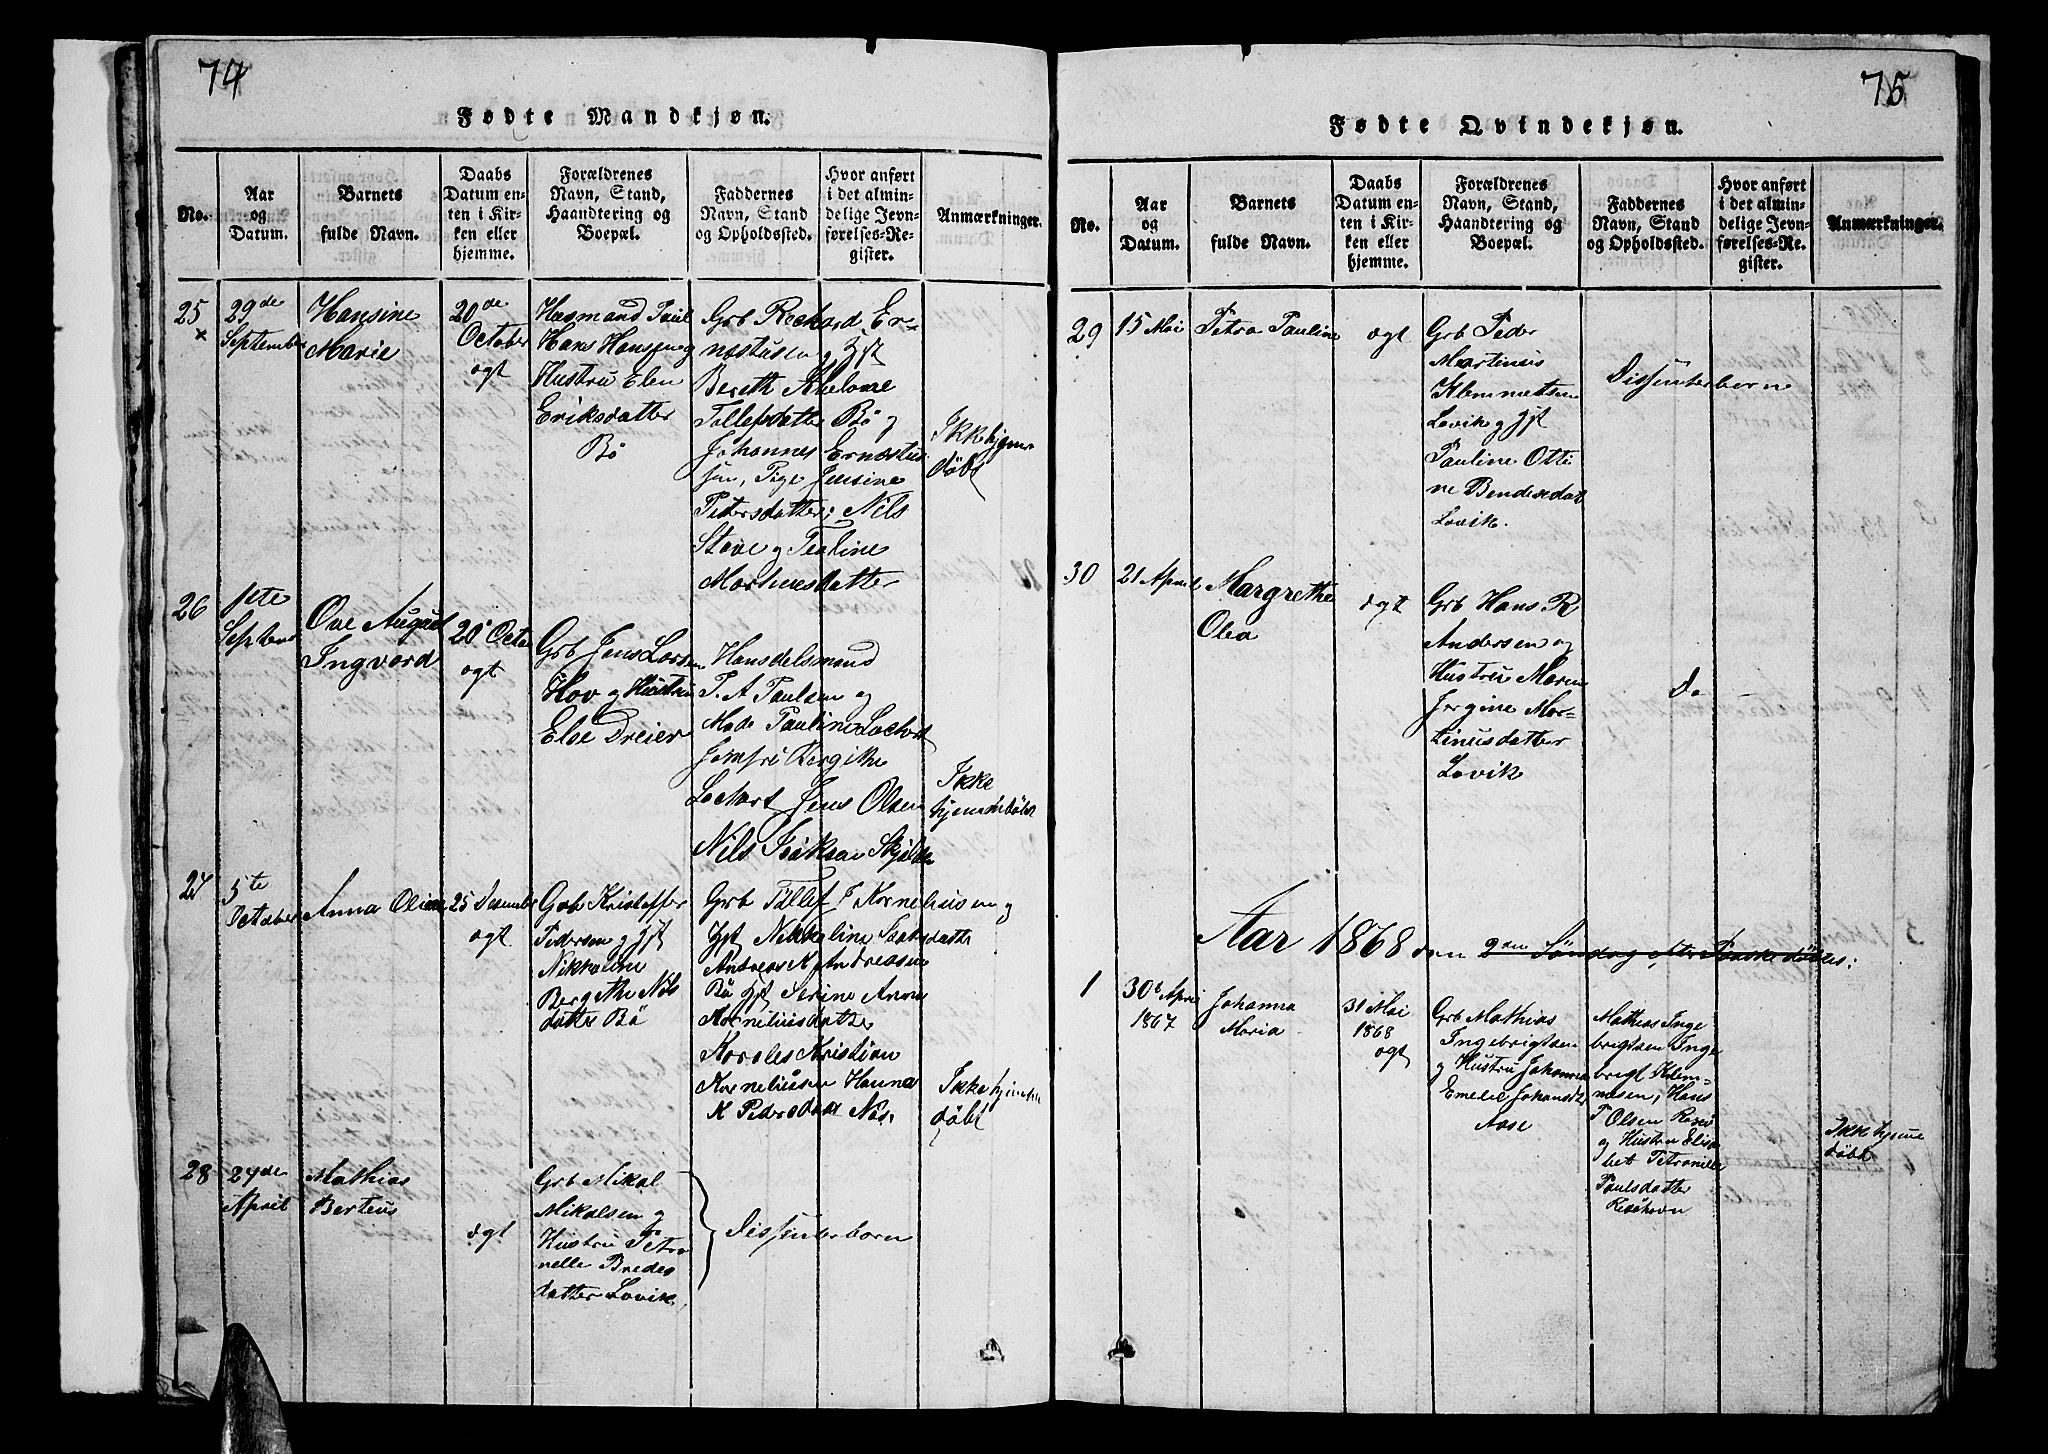 74
Fødte Mandkjøn.
No.
Aar
og
Datum.
Barnets
fulde Navn.
Daabs
Datum en-
ten i Kir-
ken eller
hjemme.
Forældrenes
Navn, Stand,
Haandtering og
Boepæl.
Faddernes
Navn, Stand
og Opholdssted.
Hvor anført
i det almin-
delige Jevn-
førelses-Re-
gister.
Anmærkninger.
25
×
29de
September
Hansine
Marie
20de
October
ogt
Huusmand Paul
Hans Hansen og
Hustru Elen
Eriksdatter
Bö
Grb Rechard Er-
næstusen og Hst
Bereth
Tollefsdatter Bö og
Johannes Ernæstus
sen, Pige Jensine
Pedersdatter; Nils
Stave og Pauline
Mortensdatter
Ikke hjeme
döbt
26
1ste
September
Ove August
Ingvard
20 Octo
ogt
Grb Jens Larsen
Hov og Hustru
Else Dreier
Handelsmand
P. A Paulsen og
Mad. Pauline Lockert
Jomfru Bergithe
Lockert Jens Olsen
Nils Isaksen
Ikke
hjemmedöbt
27
5te
October
Anna Oline
25 Desember
ogt
Grb Kristoffer
Pedersen og Hst
Nikkoline
Bergithe Nils
datter Bö
Grb Tollef J Kornelius en og
Hst Nikkeline Isaksdatter
Andreas K Andreasen
Bö Hst Serine Anna
Korneliusdatter
Karoles Kristian
Korneliussen Hanna
K Pedersdatter Nös.
Ikke hjemme
döbt
28
27de
April
Mathias
Berteus
ogt
Grb Mikal
Mikalsen og
Hustru Petro
nelle Bredes
datter Lovik
Dissenterbarn
75
Fødte Qvindekjøn.
No.
Aar
og
Datum.
Barnets
fulde Navn.
Daabs
Datum en-
ten i Kir-
ken eller
hjemme.
Forældrenes
Navn, Stand,
Haandtering og
Boepæl.
Faddernes
Navn, Stand
og Opholdssted.
Hvor anført
i det almin-
delige Jevn-
førelses-Re-
gister.
Anmærkninger.
29
15 Mai
Petra Pauline
ogt
Grb Peder
Martinus
Klemmetsen
Lovik og Hst
Pauline Otti
ne Bendixdat
Lovik.
Dissenterbarn
30
21 April
Margrethe
Olea
ogt
Grb Hans R
Andersen og
Hustru Maren
Jergine Mar-
tinusdatter
Lovik
Do
Aar 1868 den 2den Söndag efter Paaske döbtes:
1
30te April
1867
Johanna
Maria
31 Mai
1868
ogt
Grb Mathias
Ingebrigtsen
og Hustru Johanna
Emelie Johansdtr
Aase
Mathias Inge
brigtsen Inge
brigt Klem-
metsen, Hans
P Olsen
og Hustru Elisa
bet Petronille
Paulsdatter
Ikke hjeme
döbt